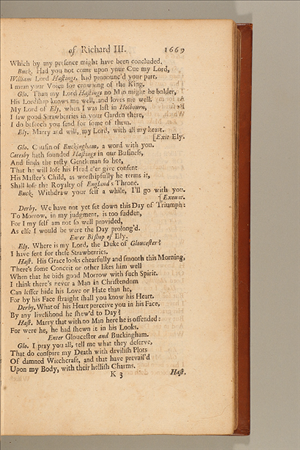 of Richard III. 1669
Which by my presence might have been concluded.
Buck. Had you not come upon your Cue my Lord,
William Lord Hastings, had pronounc'd your part,
I mean your Voice for crowning of the King.
Glo. Than my Lord Hastings no Man might be bolder,
His Lordship knows me well, and loves me well.
My Lord of Ely, when I was last in Holbourn,
I saw good Strawberries in your Garden there,
I do beseech you send for some of them.
Ely. Marry and will, my Lord, with all my heart.
[Exit Ely.
Glo. Cousin of Buckingham, a word with you.
Catesby hath sounded Hastings in our Business,
And finds the testy Gentleman so hot,
That he will lose his Head e'er give consent
His Master's Child, as worshipfully he terms it,
Shall lose the Royalty of England's Throne.
Buck. Withdraw your self a while, I'll go with you.
[Exeunt.
Derby. We have not yet set down this Day of Triumph:
To Morrow, in my judgment, is too sudden,
For I my self am not so well provided,
As else I would be were the Day prolong'd.
Enter Bishop of Ely.
Ely. Where is my Lord, the Duke of Gloucester?
I have sent for these Strawberries.
Hast. His Grace looks chearfully and smooth this Morning,
There's some Conceit or other likes him well
When that he bids good Morrow with such Spirit.
I think there's never a Man in Christendom
Can lesser hide his Love or Hate than he,
For by his Face straight shall you know his Heart.
Derby. What of his Heart perceive you in his Face,
By any livelihood he shew'd to Day?
Hast. Marry that with no Man here he is offended:
For were he, he had shewn it in his Looks.
Enter Gloucester and Buckingham.
Glo. I pray you all, tell me what they deserve,
That do conspire my Death with devilish Plots
Of damned Witchcraft, and that have prevail'd
Upon my Body, with their hellish Charms.
K 3 Hast.